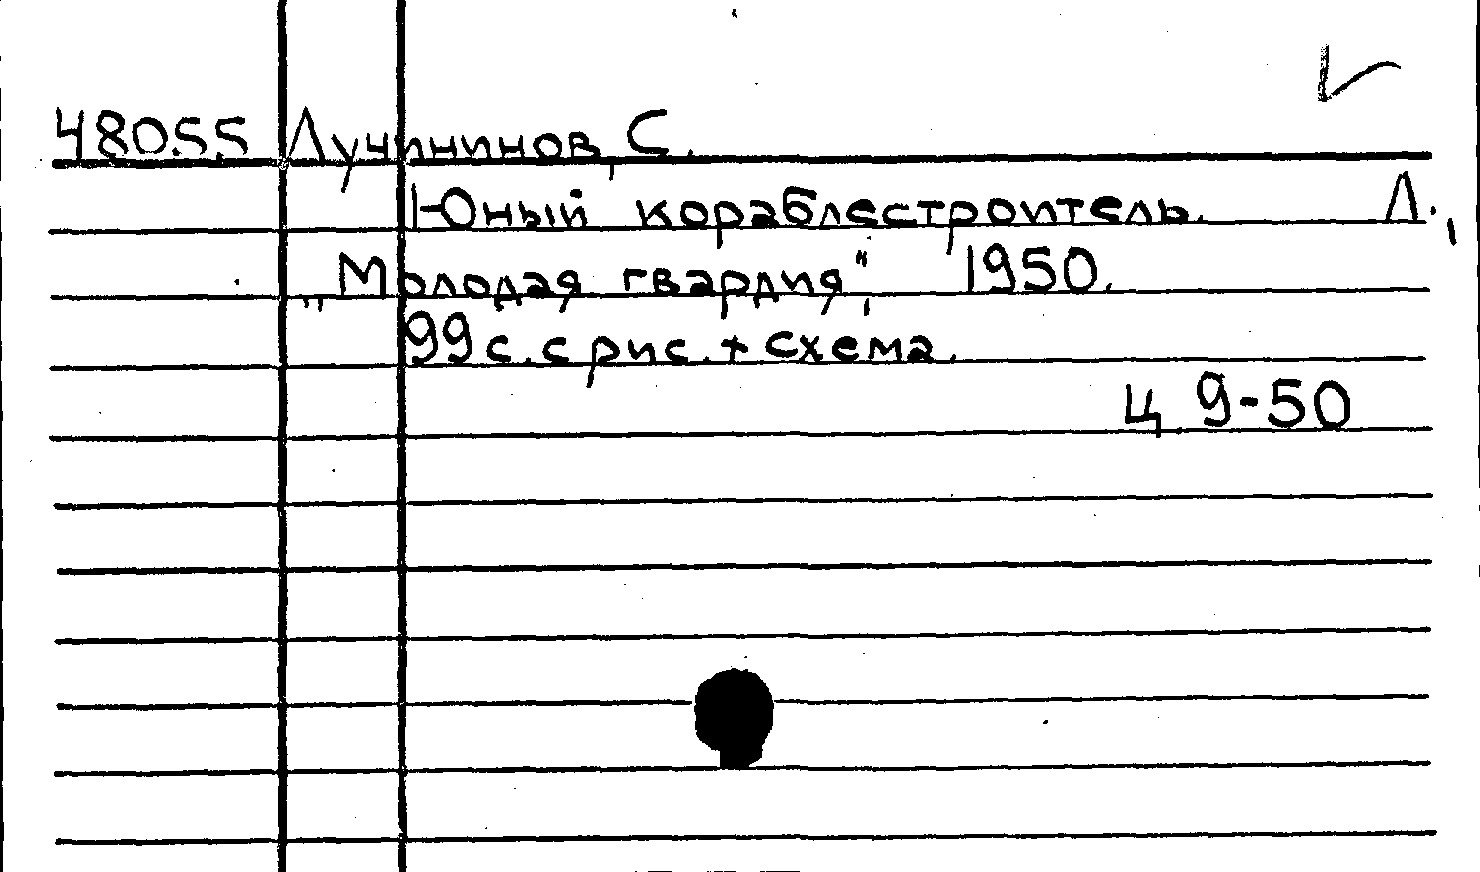 48055 Лучининов, С.
Юный кораблестроитель. Л.,
„Молодая гвардия", 1950.
99 с. с рис. + схема.
Ц 9-50